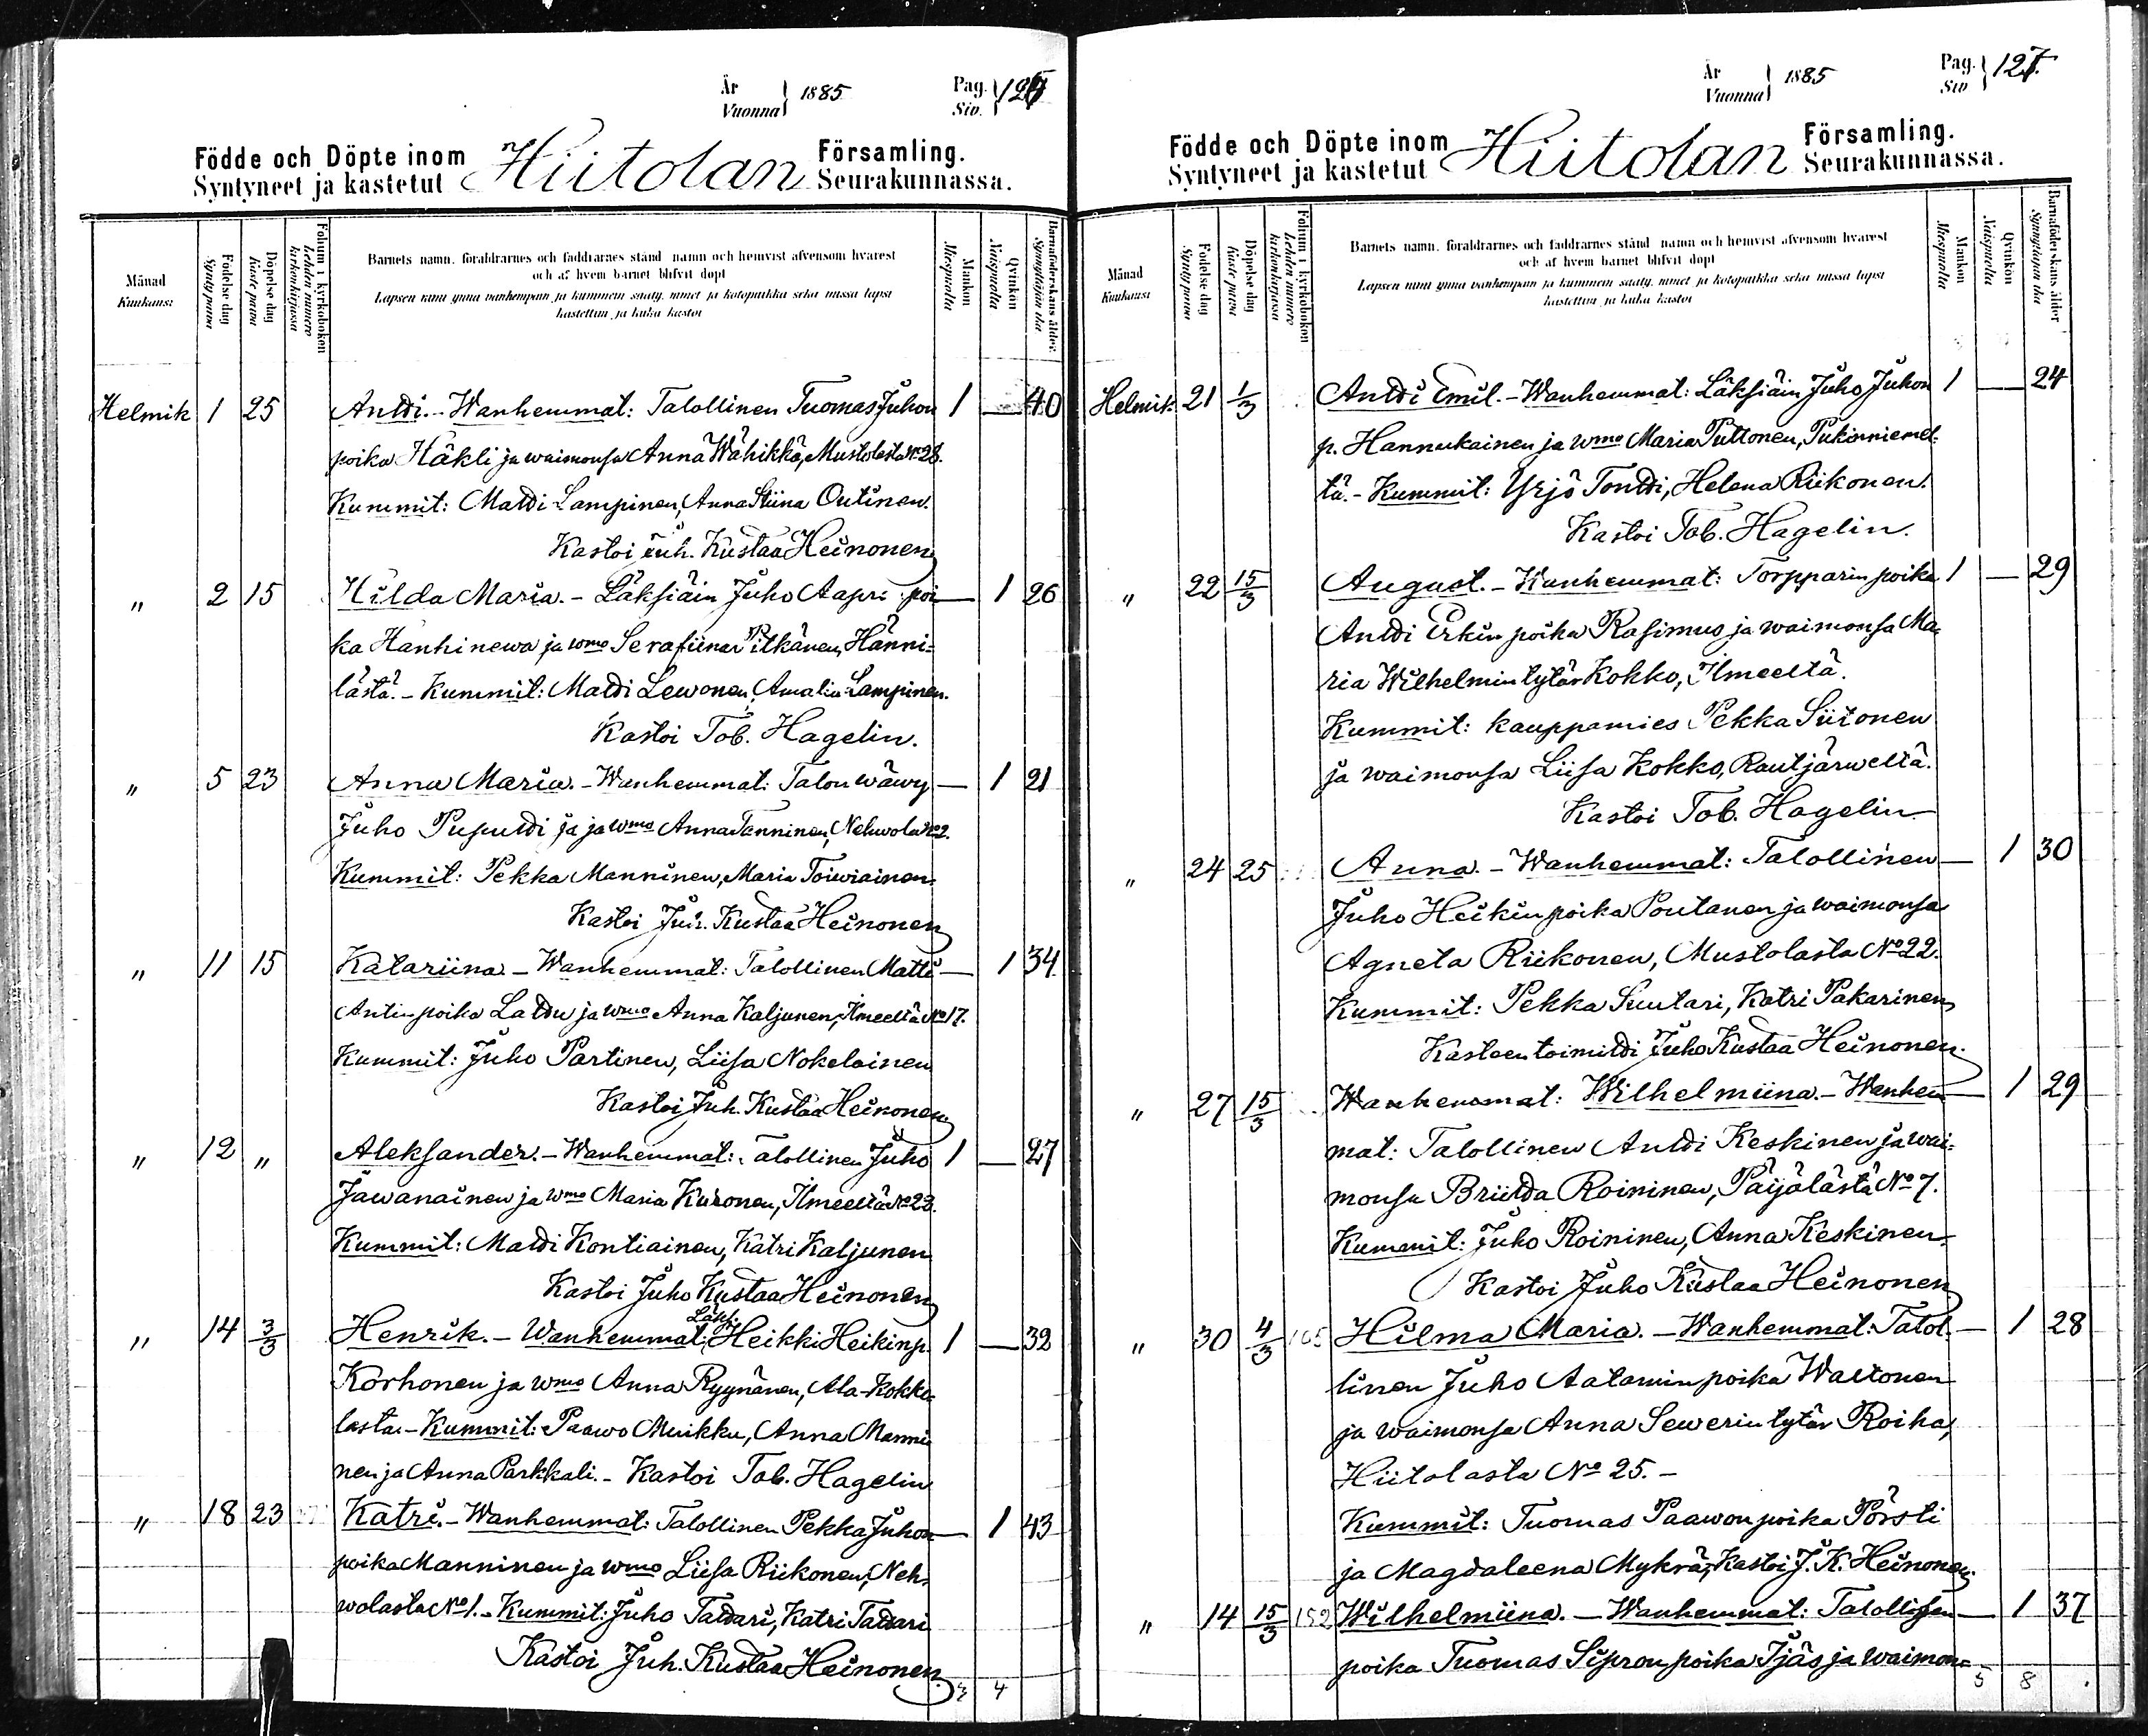 År Vuonna } 1885 Pag. Siv. }
Födde och Döpte inom Hiitolan Församling.
Syntyneet ja kastetut Seurakunnassa.
Månad Kuukausi
Födelse dag Synty päivä
Döpelse dag Kaste päivä
Folium i kyrkoboken Lehden numero kirkonkirjassa
Barnets namn, föräldrarnes och faddrarnes stånd, namn och hemvist äfvensom hvarest
och af hvem barnet blifvit döpt
Lapsen nimi ynnä vanhempain ja kummein sääty, nimet ja kotopaikka sekä missä lapsi
kastettiin ja kuka kastoi
Mankön Miespuolta
Qvinkön Naispuolta
Barnaföderskans ålder Synnyttäjän ikä
Helmik 1 25 Antti. - Wanhemmat: Talollinen Tuomas Juhon 1 — 40
poika Häkli ja waimonsa Anna Wähikkä, Mustolasta No 28.
Kummit: Matti Lampinen, Anna Stiina Outinen.
Kastoi Juh. Kustaa Heinonen
" 2 15 Hilda Maria. - Läksiäin Juho Aapri poi — 1 26
ka Hanhinewa ja wmo Serafiina Pitkänen, Hänni=
lästä. - Kummit: Matti Lewonen, Amalia Lampinen.
Kastoi Tob. Hagelin.
" 5 23 Anna Maria. - Wanhemmat: Talon wäwy — 1 21
Juho Puputti ja ja wmo Anna Tanninen, Nehwola No 2.
Kummit: Pekka Manninen, Maria Toiwiainen.
Kastoi Juh. Kustaa Heinonen
" 11 15 Katariina - Wanhemmat: Talollinen Matti — 1 34
Antin poika Lattu ja wmo Anna Kaljunen, Ilmeeltä No 17.
Kummit: Juho Partinen, Liisa Nokelainen
Kastoi Juh. Kustaa Heinonen
" 12 " Aleksander. - Wanhemmat: Talollinen Juho 1 — 27
Jawanainen ja wmo Maria Kuronen, Ilmeeltä No 23.
Kummit: Matti Kontiainen, Katri Kaljunen
Kastoi Juho Kustaa Heinonen
" 14 3/3 Henrik. - Wanhemmat: Läks. Heikki Heikinp. 1 — 32
Korhonen ja wmo Anna Ryynänen, Ala-Kokko
lasta. - Kummit: Paawo Muikku, Anna Manni
nen ja Anna Parkkali. - Kastoi Tob. Hagelin
" 18 23 Katri. - Wanhemmat: Talollinen Pekka Juhon — 1 43
poika Manninen ja wmo Liisa Riikonen, Neh.
wolasta No 1. - Kummit: Juho Tattari, Katri Tattari
Kastoi Juh. Kustaa Heinonen.
3 4
År Vuonna } 1885 Pag. Siv } 127.
Födde och Döpte inom Hiitolan Församling.
Syntyneet ja kastetut Seurakunnassa.
Månad Kuukausi
Födelse dag Synty päivä
Döpelse dag Kaste päivä
Folium i kyrkoboken Lehden numero kirkonkirjassa
Barnets namn, föräldrarnes och faddrarnes stånd, namn och hemvist äfvensom hvarest
och af hvem barnet blifvit döpt
Lapsen nimi ynnä vanhempain ja kummein sääty, nimet ja kotopaikka sekä missä lapsi
kastettiin ja kuka kastoi
Mankön Miespuolta
Qvinkön Naispuolta
Barnaföderskans ålder Synnyttäjän ikä
Helmik. 21 1/3 Antti Emil. - Wanhemmat: Läksiäin Juho Juhon 1 — 24
p. Hannukainen ja wmo Maria Puttonen, Pukinniemel=
tä. - Kummit: Yrjö Tontti, Helena Riikonen.
Kastoi Tob. Hagelin.
" 22 15/3 August. - Wanhemmat: Torpparin poika 1 — 29
Antti Erkin poika Rasimus ja waimonsa Ma=
ria Wilhelmin tytär Kokko, Ilmeeltä.
Kummit: kauppamies Pekka Siitonen
ja waimonsa Liisa Kokko, Rautjärweltä.
Kastoi Tob. Hagelin
" 24 25 Anna. - Wanhemmat: Talollinen — 1 30
Juho Heikin poika Poutanen ja waimonsa
Agneta Riikonen, Mustolasta No 22.
Kummit: Pekka Suutari, Katri Pakarinen
Kasteen toimitti Juho Kustaa Heinonen.
" 27 15/3 Wanhemmat: Wilhelmiina. - Wanhem — 1 29
mat: Talollinen Antti Keskinen ja wai=
monsa Briitta Roininen, Päijälästä No 7.
Kummit: Juho Roininen, Anna Keskinen
Kastoi Juho Kustaa Heinonen
" 30 4/3 105 Hilma Maria. - Wanhemmat: Talol- — 1 28
linen Juho Aatamin poika Waltonen
ja waimonsa Anna Sewerin tytär Roiha,
Hiitolasta No 25. -
Kummit: Tuomas Paawon poika Pörsti
ja Magdaleena Mykrä, Kastoi J. K. Heinonen.
" 14 15/3 152 Wilhelmiina. - Wanhemmat: Talollisen — 1 37
poika Tuomas Sipron poika Ijäs ja waimon=
5 8